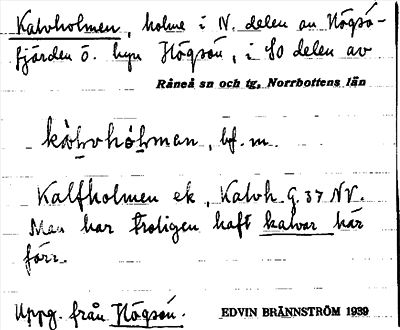 Kalvholmen, holme i N. delen av Högsö-
fjärden ö. byn Högsön, i SO delen av
Råneå sn och tg, Norrbottens län
kàlvhólman, bf. m.
Kalfholmen ek, Kalvh. G. 37 NV.
Man har troligen haft kalvar här
förr.
Uppg. från Högsön.
EDVIN BRÄNNSTRÖM 1939